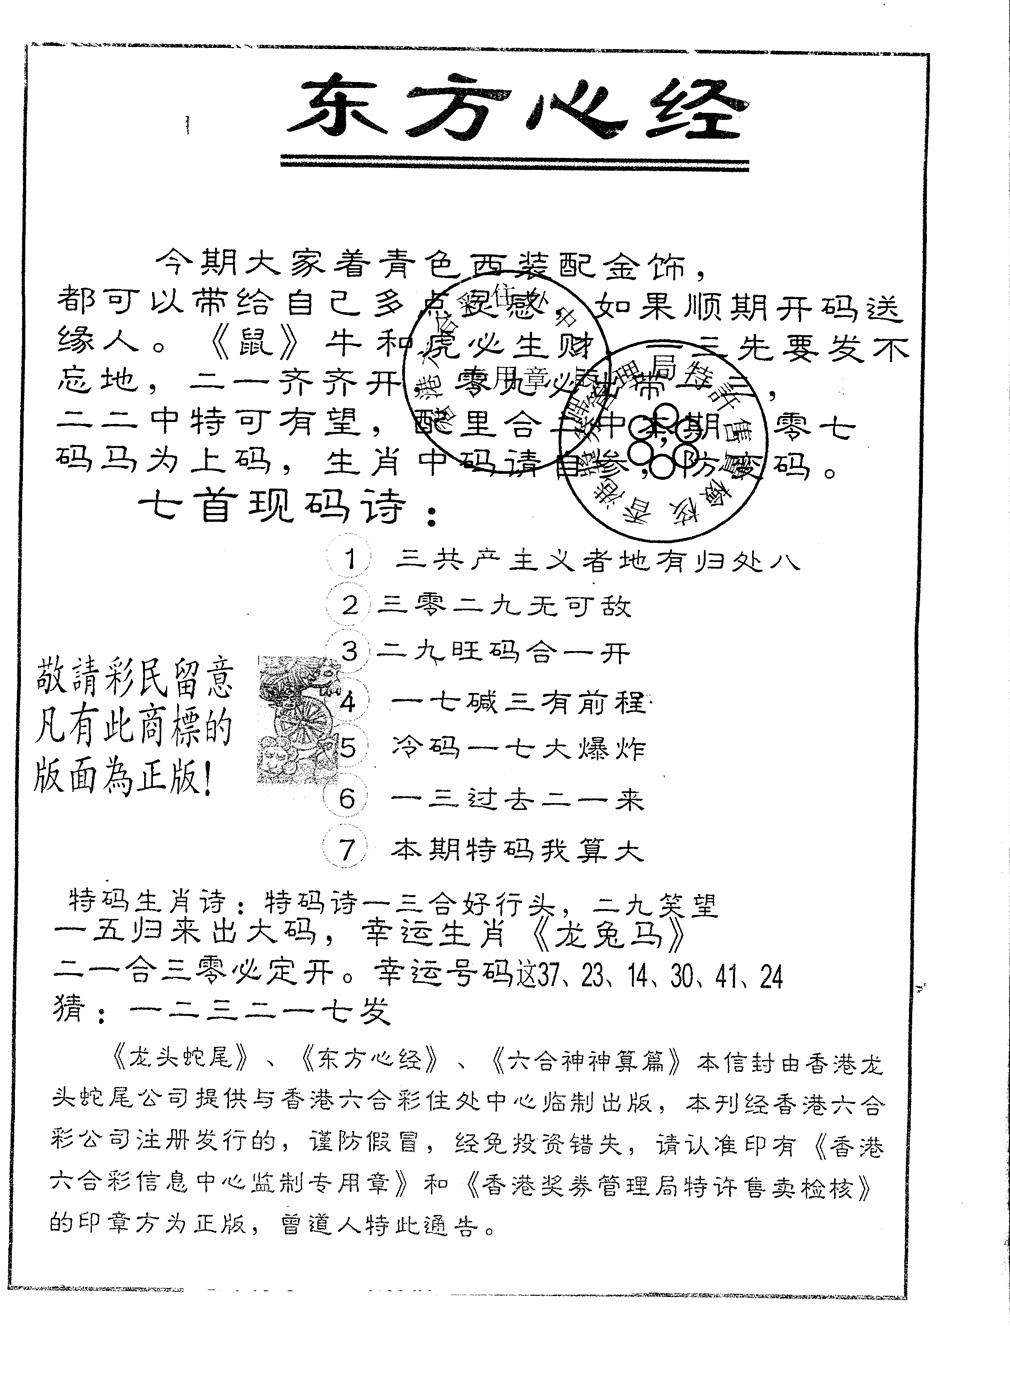 东方心经
今期大家着青色西装配金饰，
都可以带给自己多点灵感，如果顺期开码送
缘人。《鼠》牛和虎必生财，一三先要发不
忘地，二一齐齐开，零九必出带一二，
二二中特可有望，配里合二中本期，零七
码马为上码，生肖中码请自参，防变码。
七首现码诗：
1 三共产主义者地有归处八
2 三零二九无可敌
3 二九旺码合一开
4 一七碱三有前程
5 冷码一七大爆炸
6 一三过去二一来
7 本期特码我算大
敬請彩民留意
凡有此商標的
版面為正版！
特码生肖诗：特码诗一三合好行头，二九笑望
一五归来出大码，幸运生肖《龙兔马》
二一合三零必定开。幸运号码这37、23、14、30、41、24
猜：一二三二一七发
《龙头蛇尾》、《东方心经》、《六合神神算篇》本信封由香港龙
头蛇尾公司提供与香港六合彩住处中心临制出版，本刊经香港六合
彩公司注册发行的，谨防假冒，经免投资错失，请认准印有《香港
六合彩信息中心监制专用章》和《香港奖券管理局特许售卖检核》
的印章方为正版，曾道人特此通告。